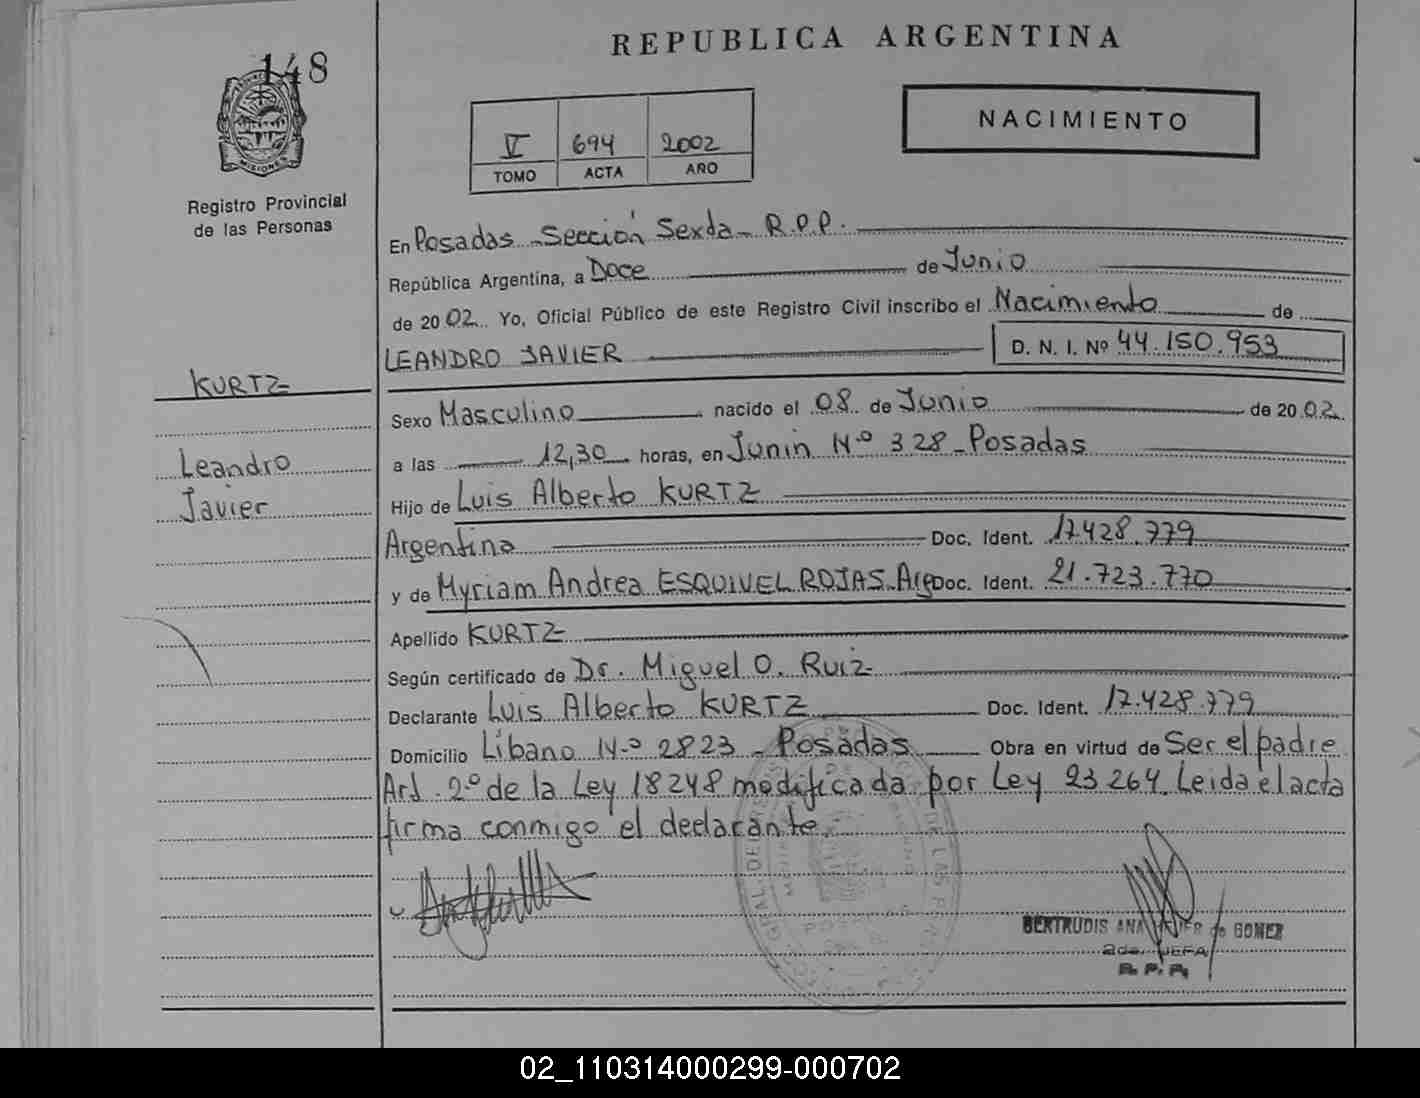 148
REPUBLICA ARGENTINA
NACIMIENTO
V 694 2002
TOMO ACTA AÑO
MISIONES
Registro Provincial
de las Personas
En Posadas - Sección Sexta - R.P.P.
República Argentina, a Doce de Junio
de 2002. Yo, Oficial Público de este Registro Civil inscribo el Nacimiento de
LEANDRO JAVIER D. N. I. Nº 44.150.953
KURTZ
Leandro
Javier
Sexo Masculino nacido el 08 de Junio de 2002
a las 12,30 horas, en Junin N.º 328 - Posadas
Hijo de Luis Alberto KURTZ
Argentina Doc. Ident. 17.428.779
y de Myriam Andrea ESQUIVEL ROJAS. Arg Doc. Ident. 21.723.770
Apellido KURTZ
Según certificado de Dr. Miguel O. Ruiz
Declarante Luis Alberto KURTZ Doc. Ident. 17.428.779
Domicilio Líbano N.º 2823 - Posadas Obra en virtud de Ser el padre
Art. 2º de la Ley 18248 modificada por Ley 23264. Leida el acta
firma conmigo el declarante.
BERTRUDIS ANA de GOMEZ
2da. JEFA
R. P. P.
02_110314000299-000702